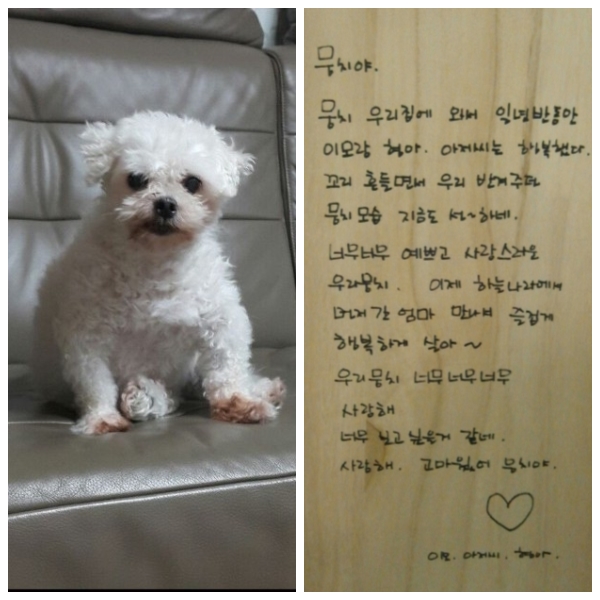 뭉치야.
뭉치 우리집에 와서 일년반동안
이모랑 형아. 아저씨는 행복했다.
꼬리 흔들면서 우리 반겨주던
뭉치모습 지금도 선~하네.
너무너무 예쁘고 사랑스러운
우리뭉치. 이제 하늘나라에서
먼저 간 엄마 만나서 즐겁게
행복하게 살아~
우리뭉치 너무너무너무
사랑해
너무 보고싶은거 같네.
사랑해. 고마웠어 뭉치야.
이모. 아저씨. 형아.